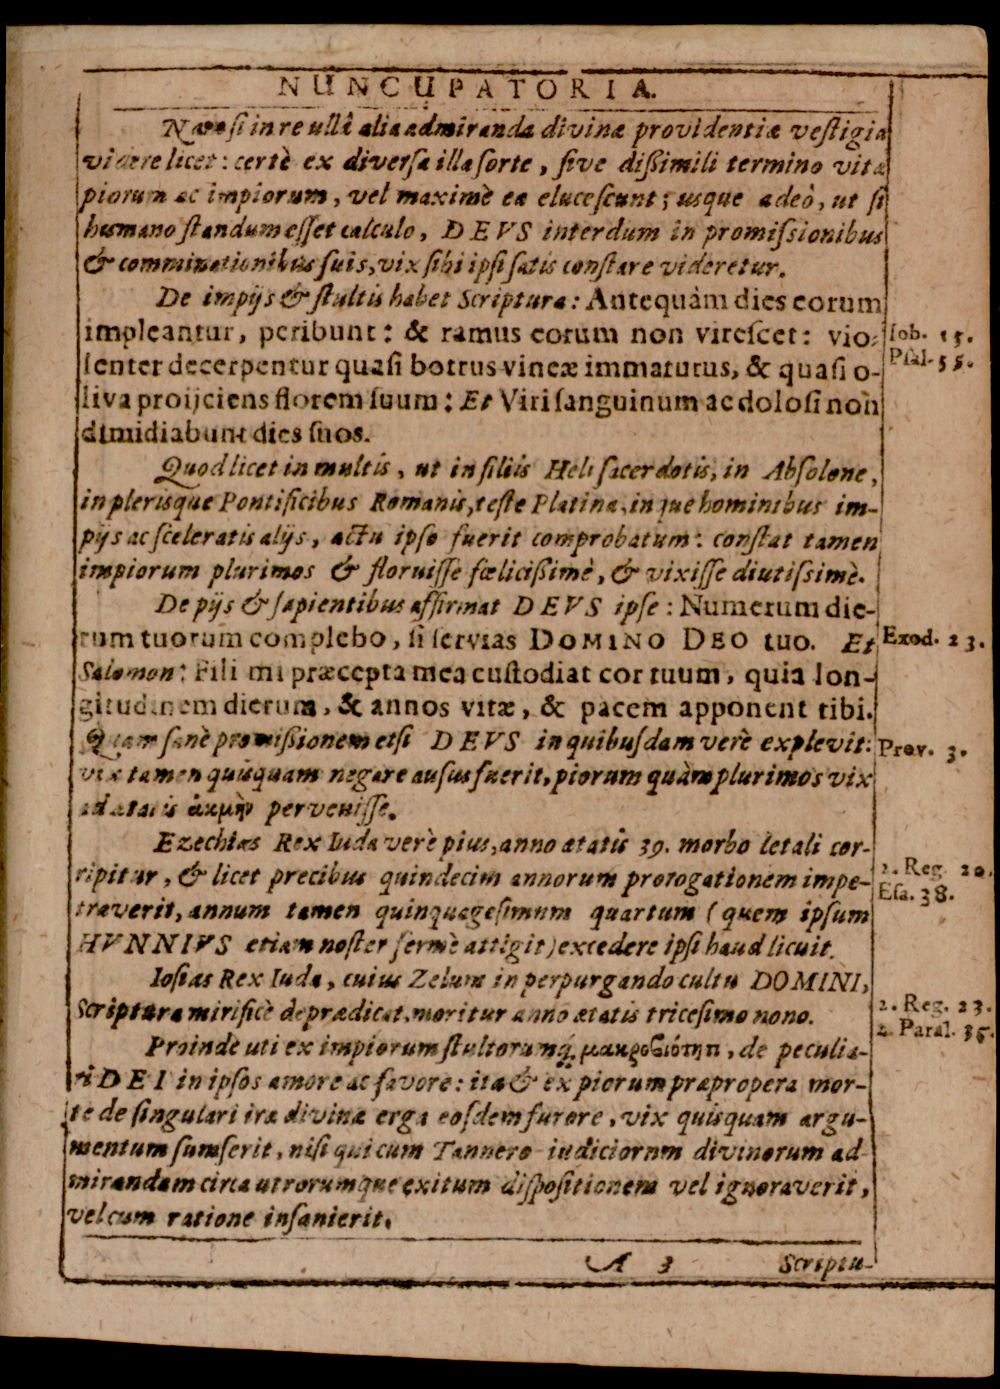 NUNCUPATORIA.
Nam si in re ullâ alia admiranda divinæ providentiæ vestigia
videre licet: certè ex diversa illa sorte, sive dißimili termino vitæ
piorum ac impiorum, vel maximè ea elucescunt; usque adeò, ut si
humano standum esset calculo, DEVS interdum in promißionibus
& comminationibus suis, vix sibi ipsi satis constare videretur.
De impijs & stultis habet Scriptura: Antequàm dies eorum
impleantur, peribunt: & ramus eorum non virescet: vio-
lenter decerpentur quasi botrus vineæ immaturus, & quasi o-
liva proijciens florem suum: Et Viri sanguinum ac dolosi non
dimidiabunt dies suos.
Iob. 15.
Psal. 55.
Quod licet in multis, ut in filiis Heli sacerdotis, in Absolone,
in plerisque Pontificibus Romanis, teste Platina, in que hominibus im-
pijs ac sceleratis alijs, actu ipso fuerit comprobatum: constat tamen
impiorum plurimos & floruisse fœlicißimè, & vixisse diutißimè.
De pijs & sapientibus affirmat DEVS ipse: Numerum die-
rum tuorum complebo, si servias DOMINO DEO tuo. Et
Salomon: Fili mi præcepta mea custodiat cor tuum, quia lon-
gitudinem dierum, & annos vitæ, & pacem apponent tibi.
Quam sanè promißionem etsi DEVS in quibusdam verè explevit:
vix tamen quisquam negare ausus fuerit, piorum quàm plurimos vix
ad ætatis ἀκμὴν pervenisse.
Exod. 23.
Prov. 3.
Ezechias Rex Iuda verè pius, anno ætatis 39. morbo letali cor-
ripitur, & licet precibus quindecim annorum prorogationem impe-
traverit, annum tamen quinquagesimum quartum (quem ipsum
HVNNIVS etiam noster fermè attigit) excedere ipsi haud licuit.
2. Reg. 20.
Esa. 38.
Iosias Rex Iuda, cuius Zelum in perpurgando cultu DOMINI,
Scriptura mirificè deprædicat, moritur anno ætatis tricesimo nono.
2. Reg. 23.
2. Paral. 35.
Proinde uti ex impiorum stultorumq; μακροβιότητι, de peculia-
ri DEI in ipsos amore ac favore: ita & ex piorum præpropera mor-
te de singulari ira divinæ erga eosdem furore, vix quisquam argu-
mentum sumserit, nisi qui cum Tannero iudiciorum divinorum ad-
mirandam circa utrorumque exitum dispositionem vel ignoraverit,
vel cum ratione insanierit.
A 3 Scriptu-